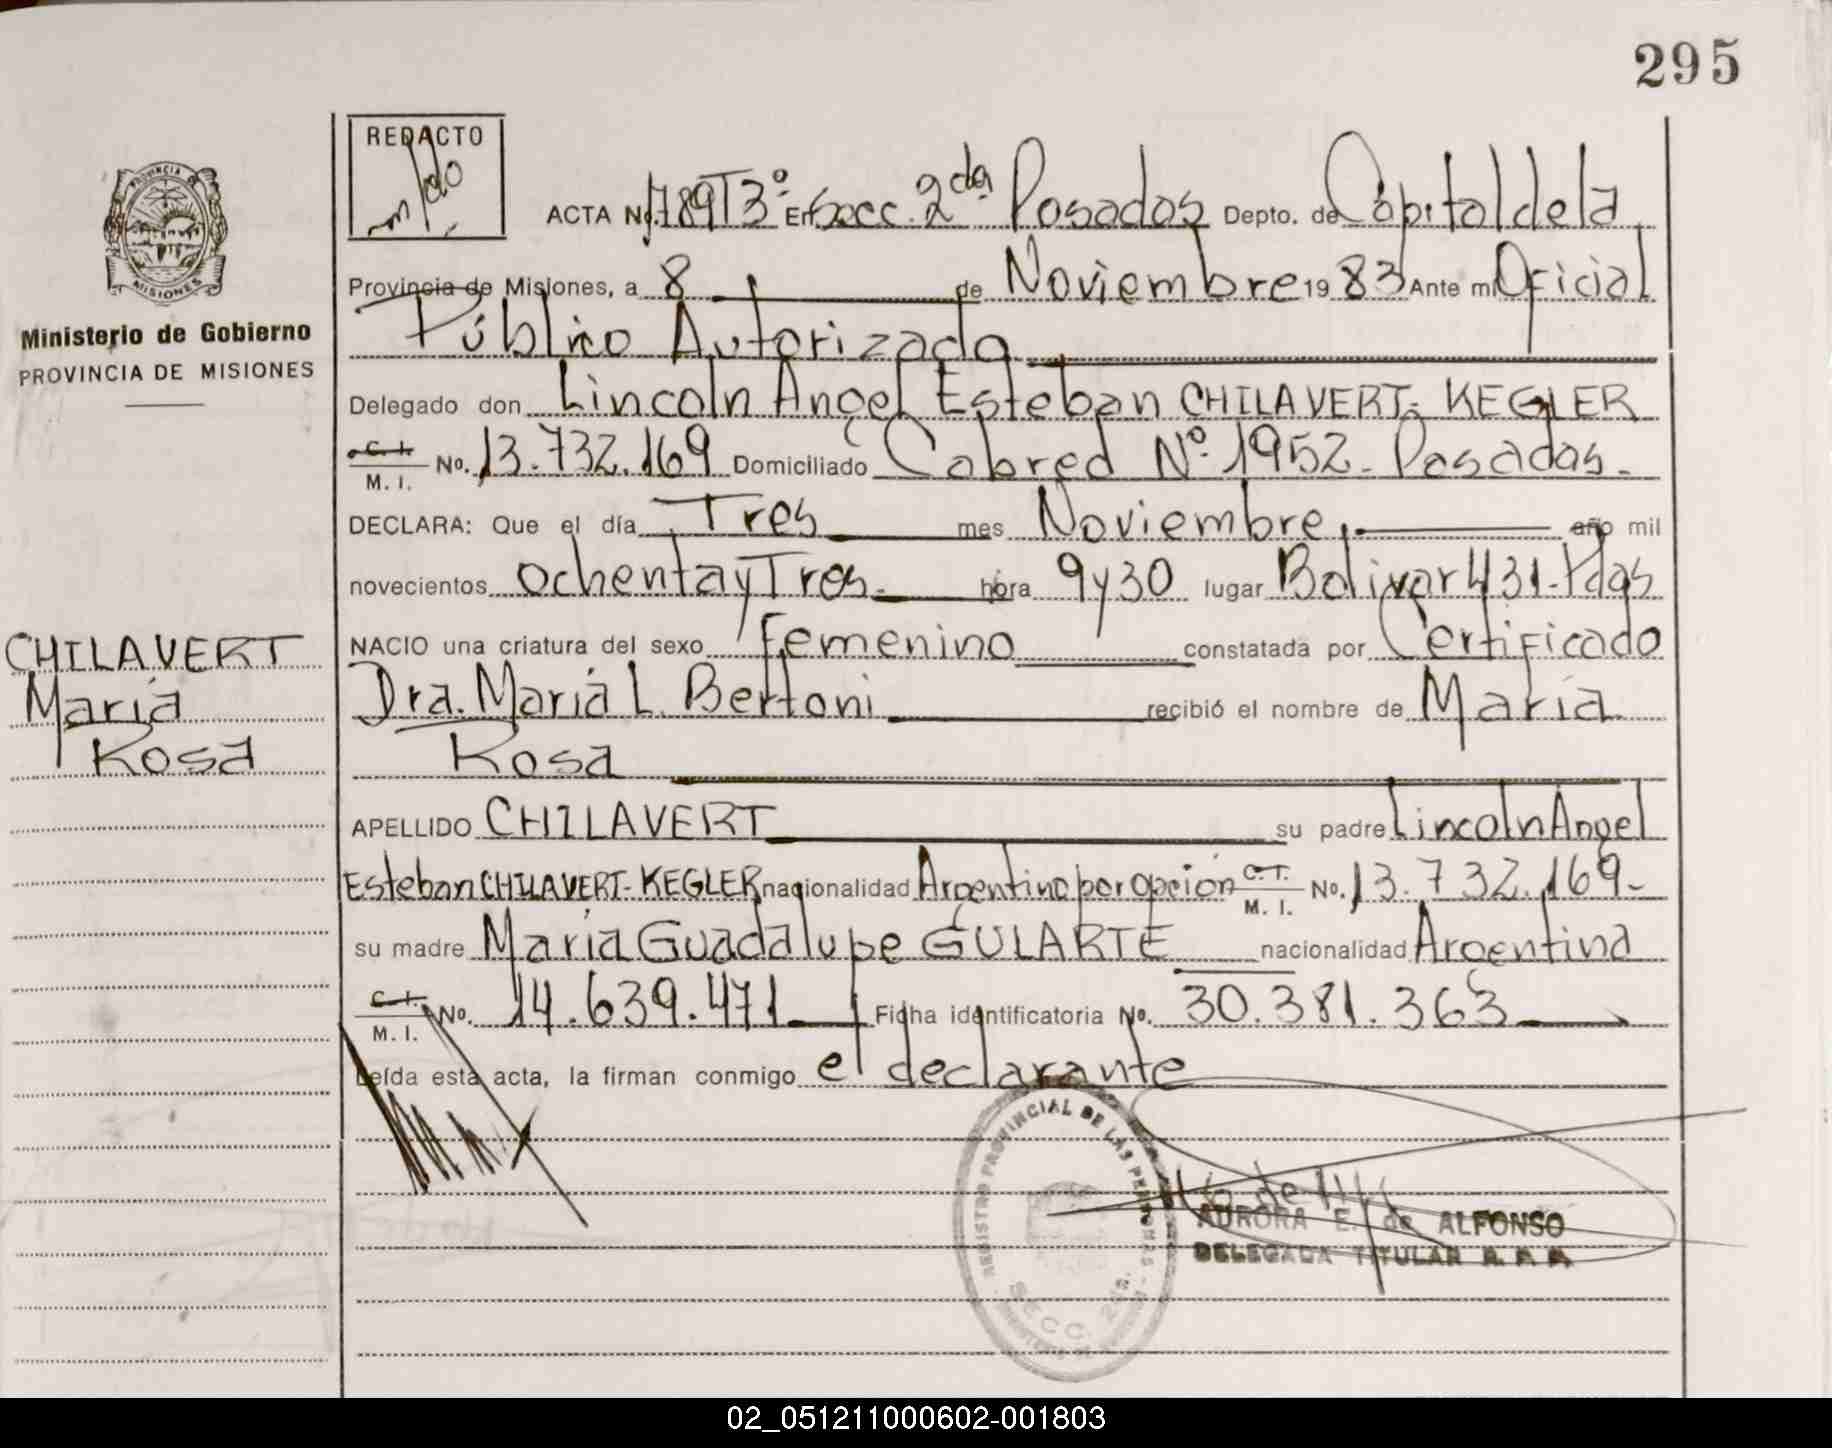 295
REDACTO
ACTA No. 1789 T3º En Secc. 2da Posadas Depto. de Capital de la
Provincia de Misiones, a 8 de Noviembre 1983 Ante mi Oficial
Público Autorizado
Ministerio de Gobierno
PROVINCIA DE MISIONES
Delegado don Lincoln Angel Esteban CHILAVERT-KEGLER
C. I.
M. I. No. 13.732.169 Domiciliado Cabred Nº 1952- Posadas-
DECLARA: Que el día Tres mes Noviembre, año mil
novecientos ochenta y Tres- hora 9 y 30 lugar Bolivar 431- Pdas
NACIO una criatura del sexo Femenino constatada por Certificado
Dra. María L. Bertoni recibió el nombre de María
Rosa
CHILAVERT
María
Rosa
APELLIDO CHILAVERT su padre Lincoln Angel
Esteban CHILAVERT-KEGLER nacionalidad Argentino por opción C. I.
M. I. No. 13.732.169-
su madre María Guadalupe GULARTE nacionalidad Argentina
C. I.
M. I. No. 14.639.471 Ficha identificatoria No. 30.381.363
Leída esta acta, la firman conmigo el declarante
REGISTRO PROVINCIAL DE LAS PERSONAS
SECC. 2da.
AURORA E. de ALFONSO
DELEGADA TITULAR R. P. P.
PROVINCIA DE
MISIONES
02_051211000602-001803